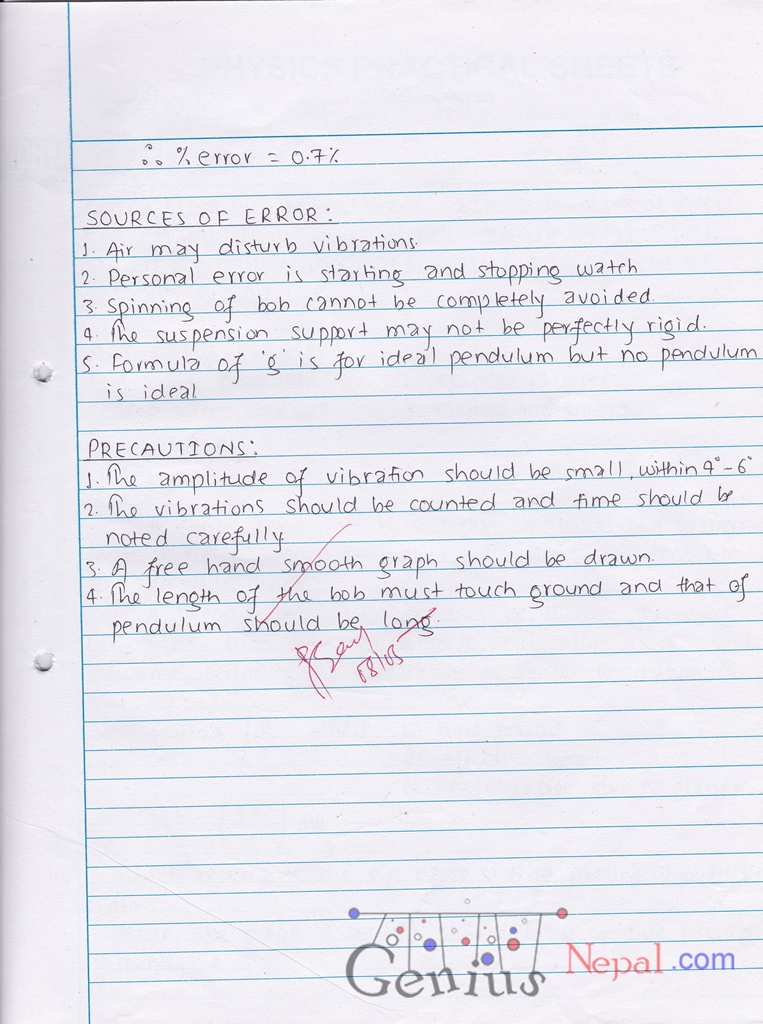 ∴ % error = 0.7%
SOURCES OF ERROR:
1. Air may disturb vibrations.
2. Personal error is starting and stopping watch
3. Spinning of bob cannot be completely avoided.
4. The suspension support may not be perfectly rigid.
5. Formula of 'g' is for ideal pendulum but no pendulum
is ideal.
PRECAUTIONS:
1. The amplitude of vibration should be small, within 4° - 6°
2. The vibrations should be counted and time should be
noted carefully
3. A free hand smooth graph should be drawn.
4. The length of the bob must touch ground and that of
pendulum should be long.
08/05
Genius Nepal.com